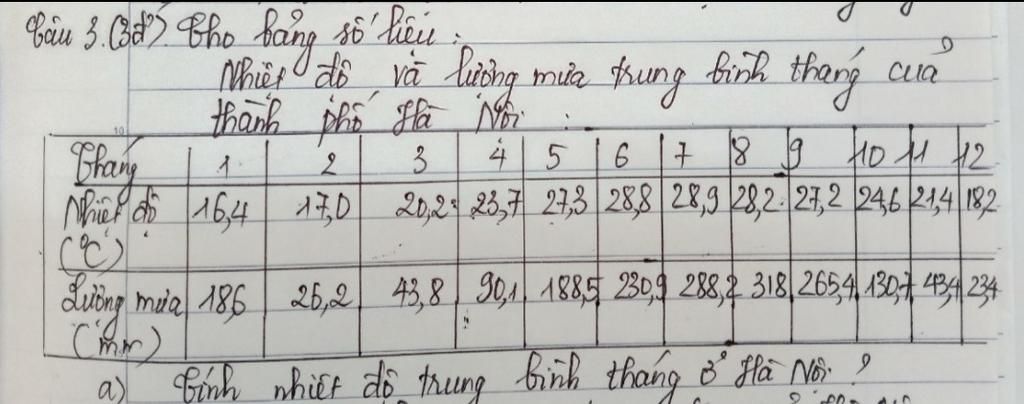 Câu 3. (3đ). Cho bảng số liệu :
Nhiệt độ và lượng mưa trung bình tháng của
thành phố Hà Nội :
Tháng 1 2 3 4 5 6 7 8 9 10 11 12
Nhiệt độ 16,4 17,0 20,2 23,7 27,3 28,8 28,9 28,2 27,2 24,6 21,4 18,2
(°C)
Lượng mưa 18,6 26,2 43,8 90,1 188,5 230,9 288,2 318 265,4 130,7 43,4 23,4
(mm)
a) Tính nhiệt độ trung bình tháng ở Hà Nội ?